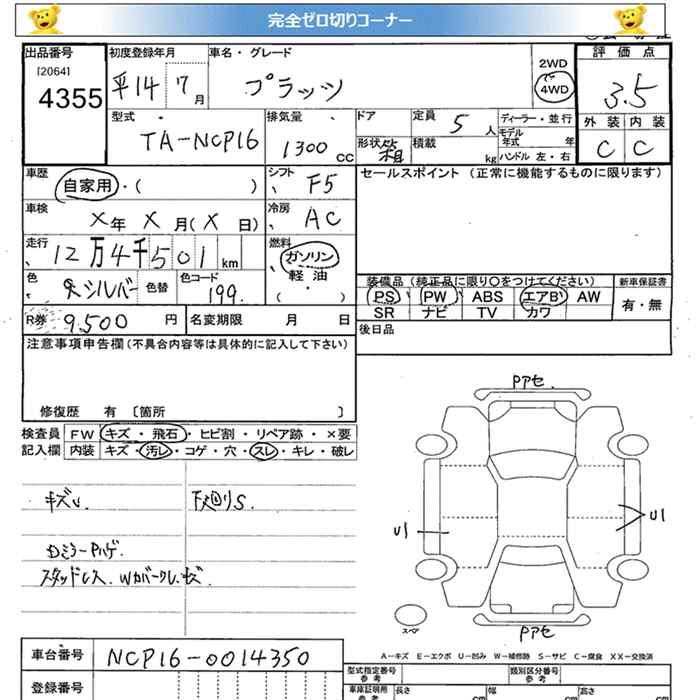 完全ゼロ切りコーナー
出品番号
[2064]
4355
初度登録年月
平14 7月
車名・グレード
プラッツ
2WD
4WD
評価点
3.5
外装 内装
C C
型式
TA-NCP16
排気量
1300 cc
ドア
定員
5 人
形状 箱
積載
kg
ディーラー・並行
モデル年式 年
ハンドル 左・右
車歴
自家用・( )
シフト
F5
セールスポイント (正常に機能するものに限ります)
車検
X年 X 月(X 日)
冷房
AC
走行
12万4千501 km
燃料
ガソリン
軽油
( ・ )
色
シルバー
色替
色コード
199
装備品 (純正品に限り○をつけてください)
新車保証書
PS PW ABS エアB AW
有・無
SR ナビ TV カワ
R券 9,500 円
名変期限 月 日
後日品
注意事項申告欄(不具合内容等は具体的に記入して下さい)
修復歴 有 〔箇所 〕
検査員
記入欄
FW キズ・飛石・ヒビ割・リペア跡・×要
内装 キズ・汚レ・コゲ・穴・スレ・キレ・破レ
キズU.
下廻りS.
DミラーPハゲ.
スタッドレス.
Pアセ
U1
U1
Pアセ
スペア
A-キズ E-エクボ U-凹み W-補修跡 S-サビ C-腐食 XX-交換済
車台番号
NCP16-0014350
登録番号
型式指定番号
参考
類別区分番号
参考
車庫証明用
参考
長さ cm
幅 cm
高さ cm